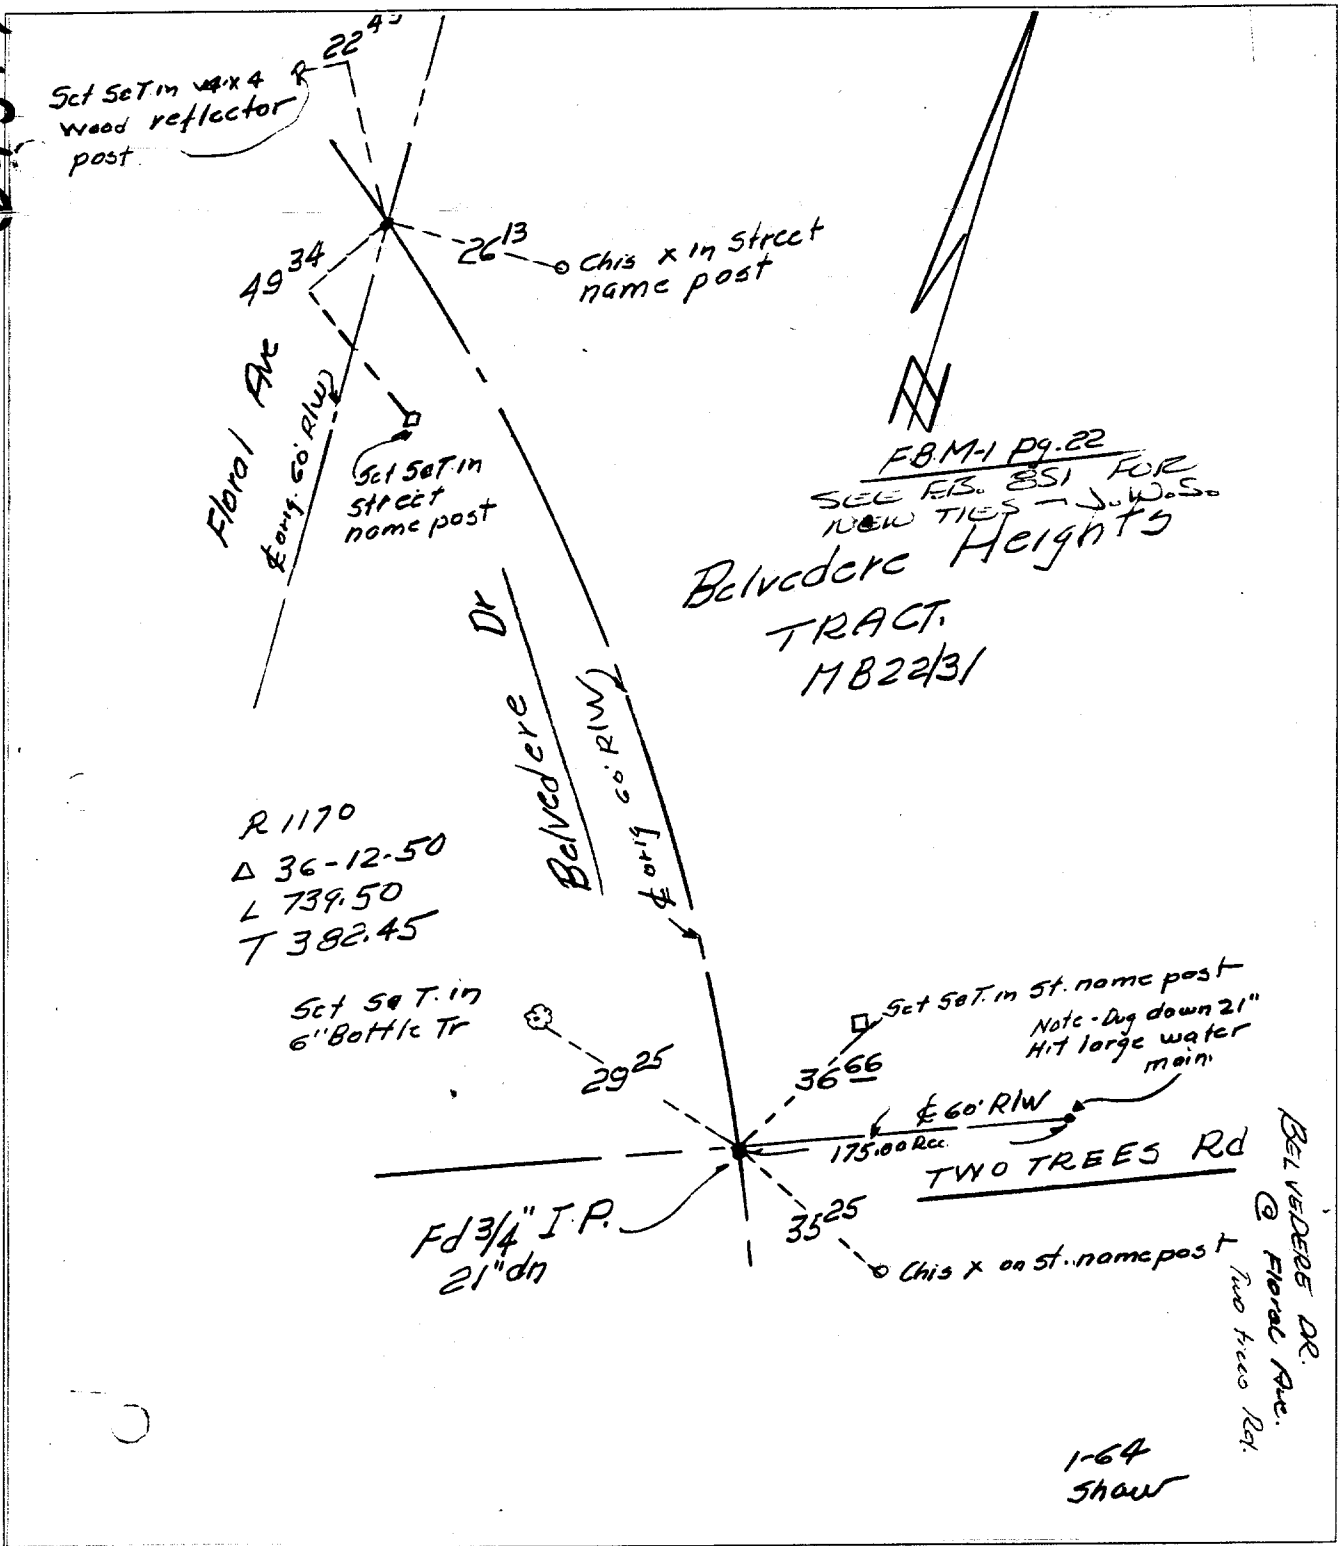 22
Set S&T in 4x4
wood reflector
post
26 13
Chis x in Street
name post
49 34
Floral Ave
℄ orig. 60' R/W
Set S&T in
street
name post
F.B. M-1 pg. 22
SEE F.B. 851 FOR
NEW TIES - J.W.S.
Belvedere Heights
TRACT.
MB 22/31
Belvedere Dr
℄ orig 60' R/W
R 1170
Δ 36-12-50
L 739.50
T 382.45
Set S&T. in
6" Bottle Tr
29 25
Set S&T. in St. name post
Note - Dug down 21"
Hit large water
main.
36 66
℄ 60' R/W
175.00 Rec.
TWO TREES Rd
Fd 3/4" I.P.
21" dn
35 25
Chis x on st. name post
BELVEDERE DR.
@ Floral Ave.
Two trees Rd.
1-64
Shaw